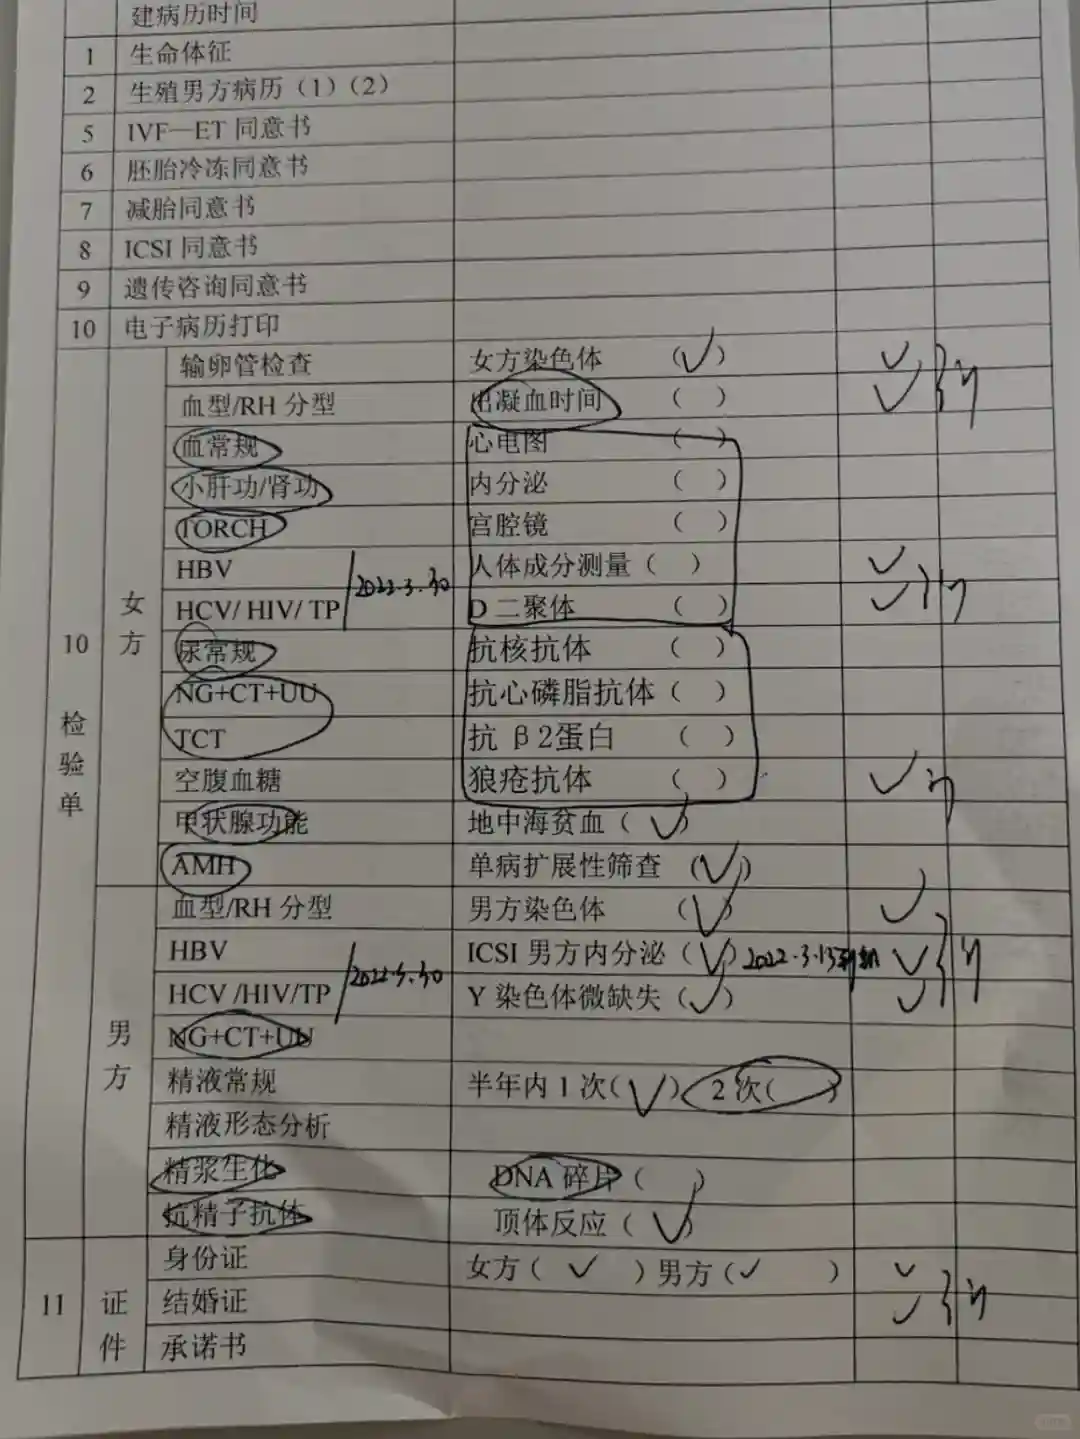 建病历时间
1 生命体征
2 生殖男方病历（1）（2）
5 IVF—ET 同意书
6 胚胎冷冻同意书
7 减胎同意书
8 ICSI 同意书
9 遗传咨询同意书
10 电子病历打印
10 检验单
女方
输卵管检查 女方染色体 （✓）
血型/RH 分型 出凝血时间 （ ）
血常规 心电图 （ ）
小肝功/肾功 内分泌 （ ）
TORCH 宫腔镜 （ ）
HBV 2022.3.30 人体成分测量（ ）
HCV/ HIV/ TP D 二聚体 （ ）
尿常规 抗核抗体 （ ）
NG+CT+UU 抗心磷脂抗体（ ）
TCT 抗 β2蛋白 （ ）
空腹血糖 狼疮抗体 （ ）
甲状腺功能 地中海贫血（✓）
AMH 单病扩展性筛查 （✓）
男方
血型/RH 分型 男方染色体 （✓）
HBV 2022.3.30 ICSI 男方内分泌（✓）2022.3.13
HCV /HIV/TP Y 染色体微缺失（✓）
NG+CT+UU
精液常规 半年内 1 次(✓) 2 次( )
精液形态分析
精浆生化 DNA 碎片（ ）
抗精子抗体 顶体反应（✓）
11 证件
身份证 女方（✓）男方（✓）
结婚证
承诺书